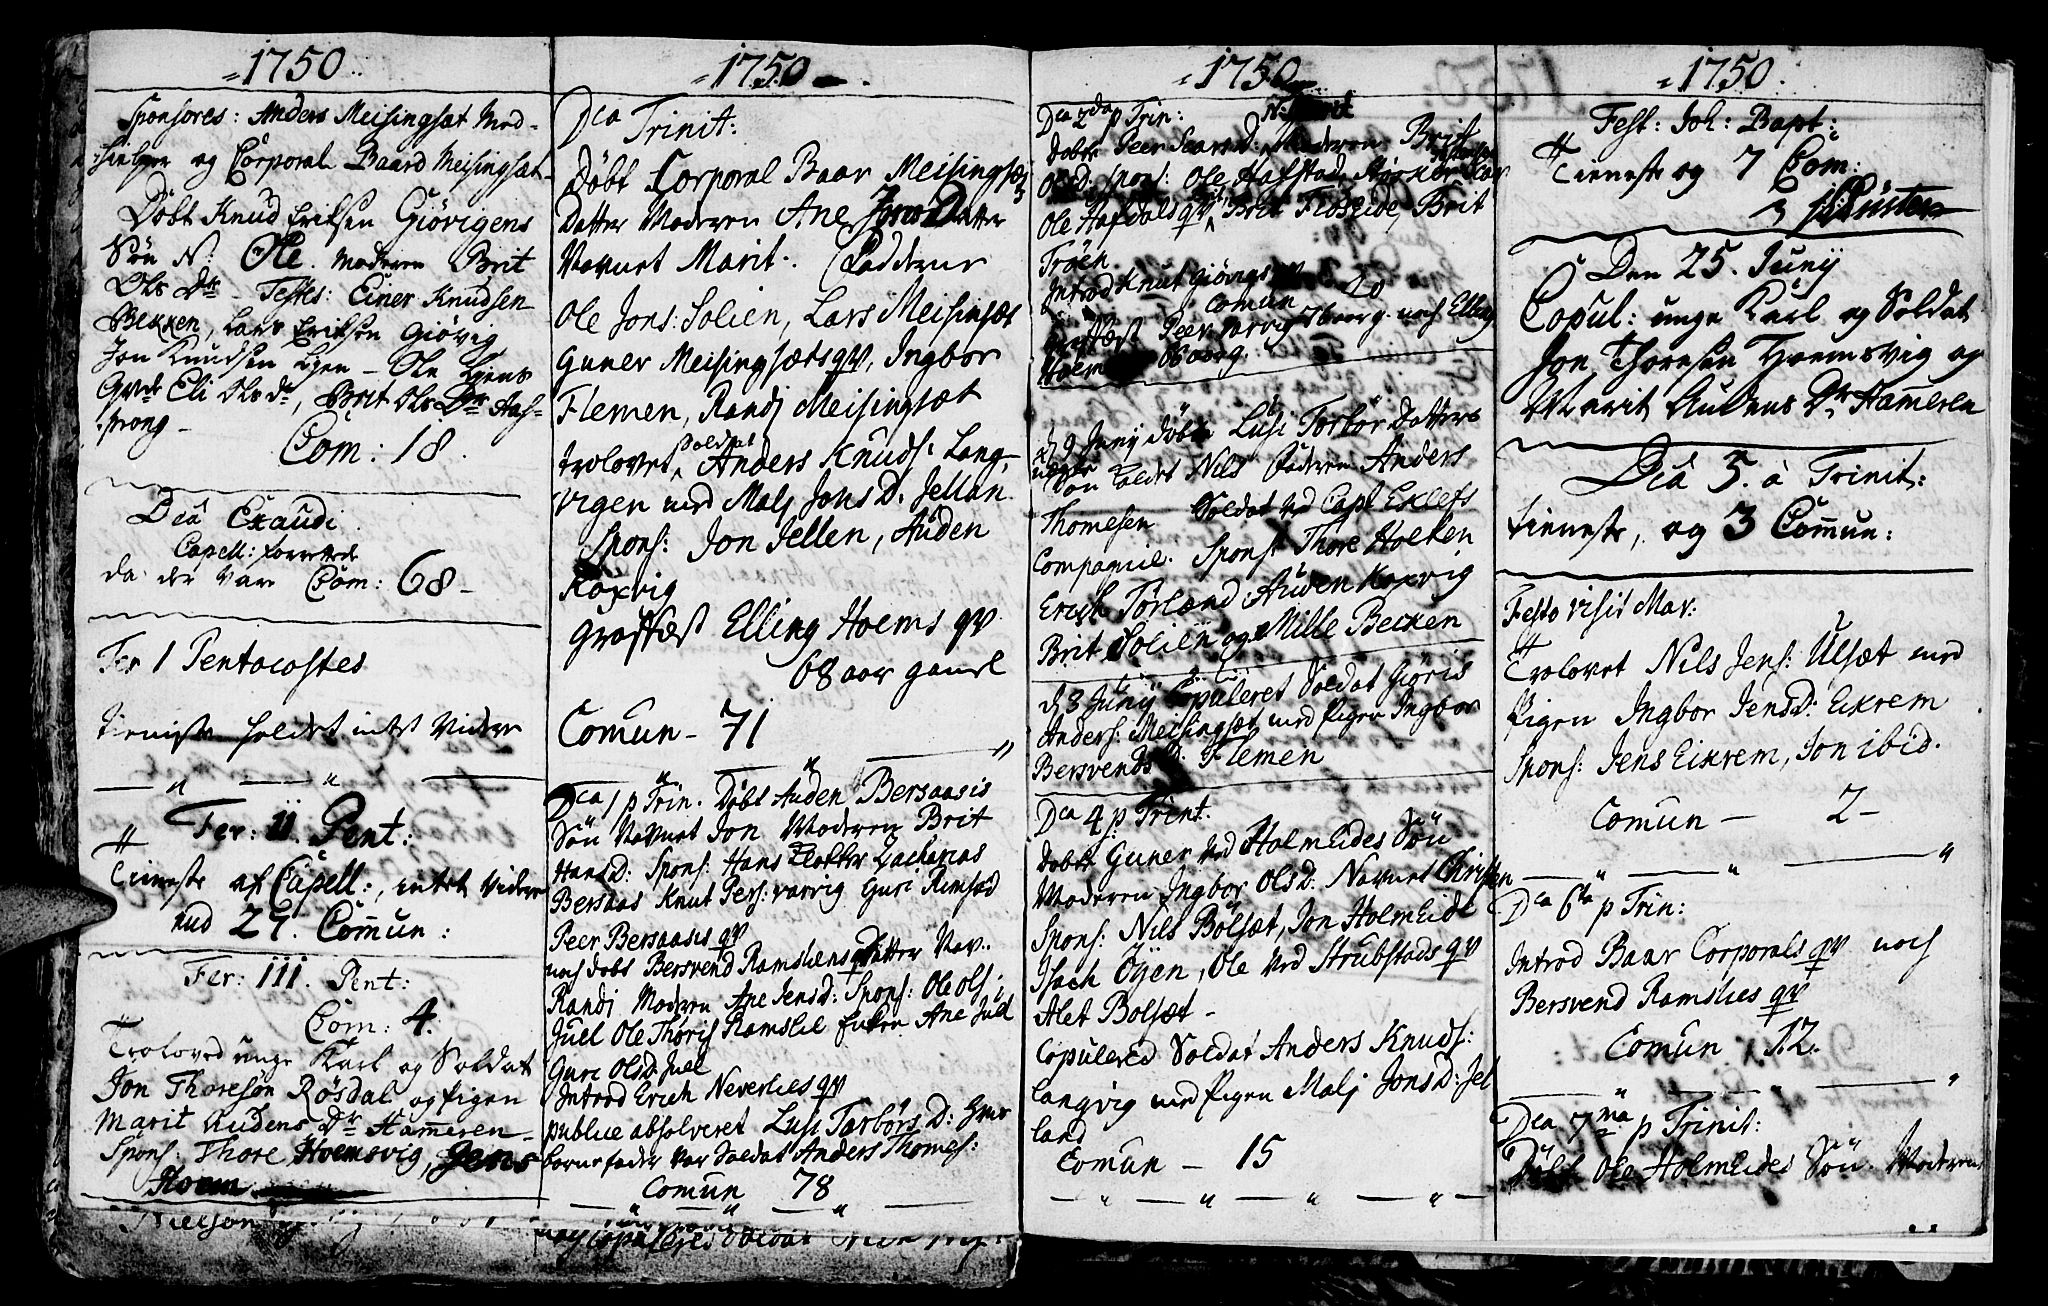 1750
Sponsores: Anders Meisingset Med-
hielper og Corporal Baard Meisingsat
Döbt Knud Eriksen Giövigens
Sön N: Ole. Moderen Brit
Ols Dr - Testes: Einer Knudsen
Bekken, Lars Eriksen Giövig
Jon Knudsen Lyen - Ole Lyens
Qvde Eli Olsdr, Brit Ols Dr Aas-
strong -
Com: 18.
Dca Exaudi.
Capell: forrettede
da der Vare Com: 68 -
Fer 1 Pentacostes
Tieniste holdet intet Videre
Fer: II. Pent:
Tieneste af Capell:, intet Videre
end 27. Commun:
Fer: III. Pent:
Com: 4.
Troloved unge Karl og Soldat
Jon Thoresön Rösdal og pigen
Marit Audens Dr Hammeren -
Spons: Thore Hoemsvig, Jens
Hoem
1750
Dca Trinit:
Döbt Corporal Baar Meisingsæt
Datter Moderen Ane Jons Datter
Navnet Marit. Fadderne
Ole Jons: Solien, Lars Meisingsæt
Guner Meisingsæts qv, Ingbor
Flemen, Randj Meisingsæt
trolovet Soldat Anders Knuds: Lang-
vigen med Malj Jons D: Jellan
Spons: Jon Jellen, Auden
Koxvig
Graffæst Elling Hoems qv
68 aar gamel
Comun - 71
Dca 1 p Trin. Döbt Auden Bersaasis
Sön Navnet Jon Moderen Brit
Hans D: Spons: Hans Klokker Zacharias
Bersaas Knut Pers: varvig Guri Remsød
Peer Bersaasis qv
noch döbt Bersvend Ramsliens Datter Nav:
Randj Moderen Ane Jens D: Spons: Ole Ols:
Juel Ole Thoris Ramslil Enken Ane Juel
Guri Ols D: Juel
Introd Erich Neverlies qv
publice absolveret Lusi Torbörs D: hvis
barnefader var Soldat Anders Thomes:
Comun 78
1750
Dca 2da p Trin:
Döbt Peer Sears D: Moderen Brit
Ols D: Spons: Ole Hafstad
Ole Hafdals qv, Brit Flöseide, Brit
Tröen
Introd Knut Giövigs qv
Comun 20
Graffæst Peer varvig 76 aar g. noch Elling
Hoem
d 9 Junij döbt Lusi Torbör Datters
uegte Sön kaldet Nils Faderen Anders
Thomesen Soldat ved Capt Exlefs
Compagnie. Spons: Thore Hocken
Erich Torlænd Auden Koxvig
Brit Solien og Mille Becken
d 3 Junij Copuleret Soldat Giöris
Anders: Meisingsæt med pigen Ingbor
Bersvends D: Flemen
Dca 4 p: Trint.
Döbt Guner ved Holmeides Sön
Moderen Ingbor Ols D: Navnet Christen
Spons: Nils Bölsæt, Jon Holmeide
Isach Öyen, Ole ved Strubstads qv
Alet Bolsæt -
Copulered Soldat Anders Knuds:
Langvig med Pigen Malj Jons D: Jel
land
Comun - 15
1750
Fest: Joh: Bapt:
Tieneste og 7 Com:
Den 25. Juny
Copul: unge Karl og Soldat
Jon Thoresen Hoemsvig og
Marit Audens Dr Hammeren
Dca 5. a Trinit:
tieneste, og 3 Commun:
Festo visit Mar:
Trolovet Nils Jens: Ulsæt med
Pigen Ingbor Jens D: Eikrem
Spons: Jens Eikrem, Jon ibid.
Comun - 2 -
Dca 6ta p Trin:
Introd Baar Corporals qv noch
Bersvend Ramslies qv
Comun 12.
Dca 7ma p Trinit:
Döbt Ole Holmeides Sön Moderen